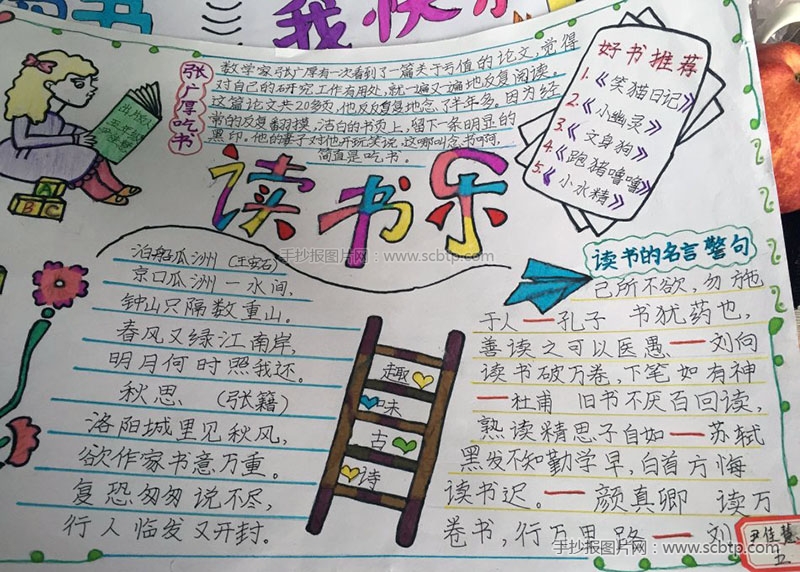 我快乐
张广厚吃书
数学家张广厚有一次看到了一篇关于亏值的论文,觉得
对自己的研究工作有用处,就一遍又一遍地反复阅读。
这篇论文共20多页,他反反复复地念了半年多。因为经
常的反复翻摸,洁白的书页上,留下一条明显的
黑印。他的妻子对他开玩笑说,这哪叫念书啊,
简直是吃书。
好书推荐
1.《笑猫日记》
2.《小幽灵》
3.《文身狗》
4.《跑猪噜噜》
5.《小水精》
读书乐
手抄报图片网:www.scbtp.com
ABC
泊船瓜洲 (王安石)
京口瓜洲一水间,
钟山只隔数重山。
春风又绿江南岸,
明月何时照我还。
秋思 (张籍)
洛阳城里见秋风,
欲作家书意万重。
复恐匆匆说不尽,
行人临发又开封。
趣
味
古
诗
读书的名言警句
己所不欲,勿施
于人——孔子 书犹药也,
善读之可以医愚——刘向
读书破万卷,下笔如有神
——杜甫 旧书不厌百回读,
熟读精思子自如——苏轼
黑发不知勤学早,白首方悔
读书迟。——颜真卿 读万
卷书,行万里路——刘
手抄报图片网:www.scbtp.com